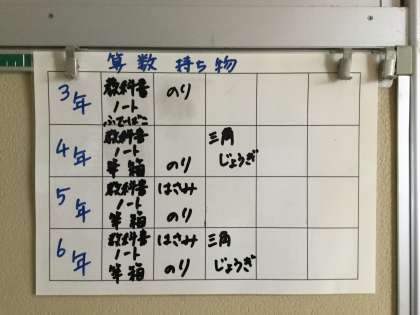 算数 持ち物
3年 教科書 のり
ノート
ふでばこ
4年 教科書 三角
ノート じょうぎ
筆箱 のり
5年 教科書 はさみ
ノート
筆箱 のり
6年 教科書 はさみ 三角
ノート じょうぎ
筆箱 のり